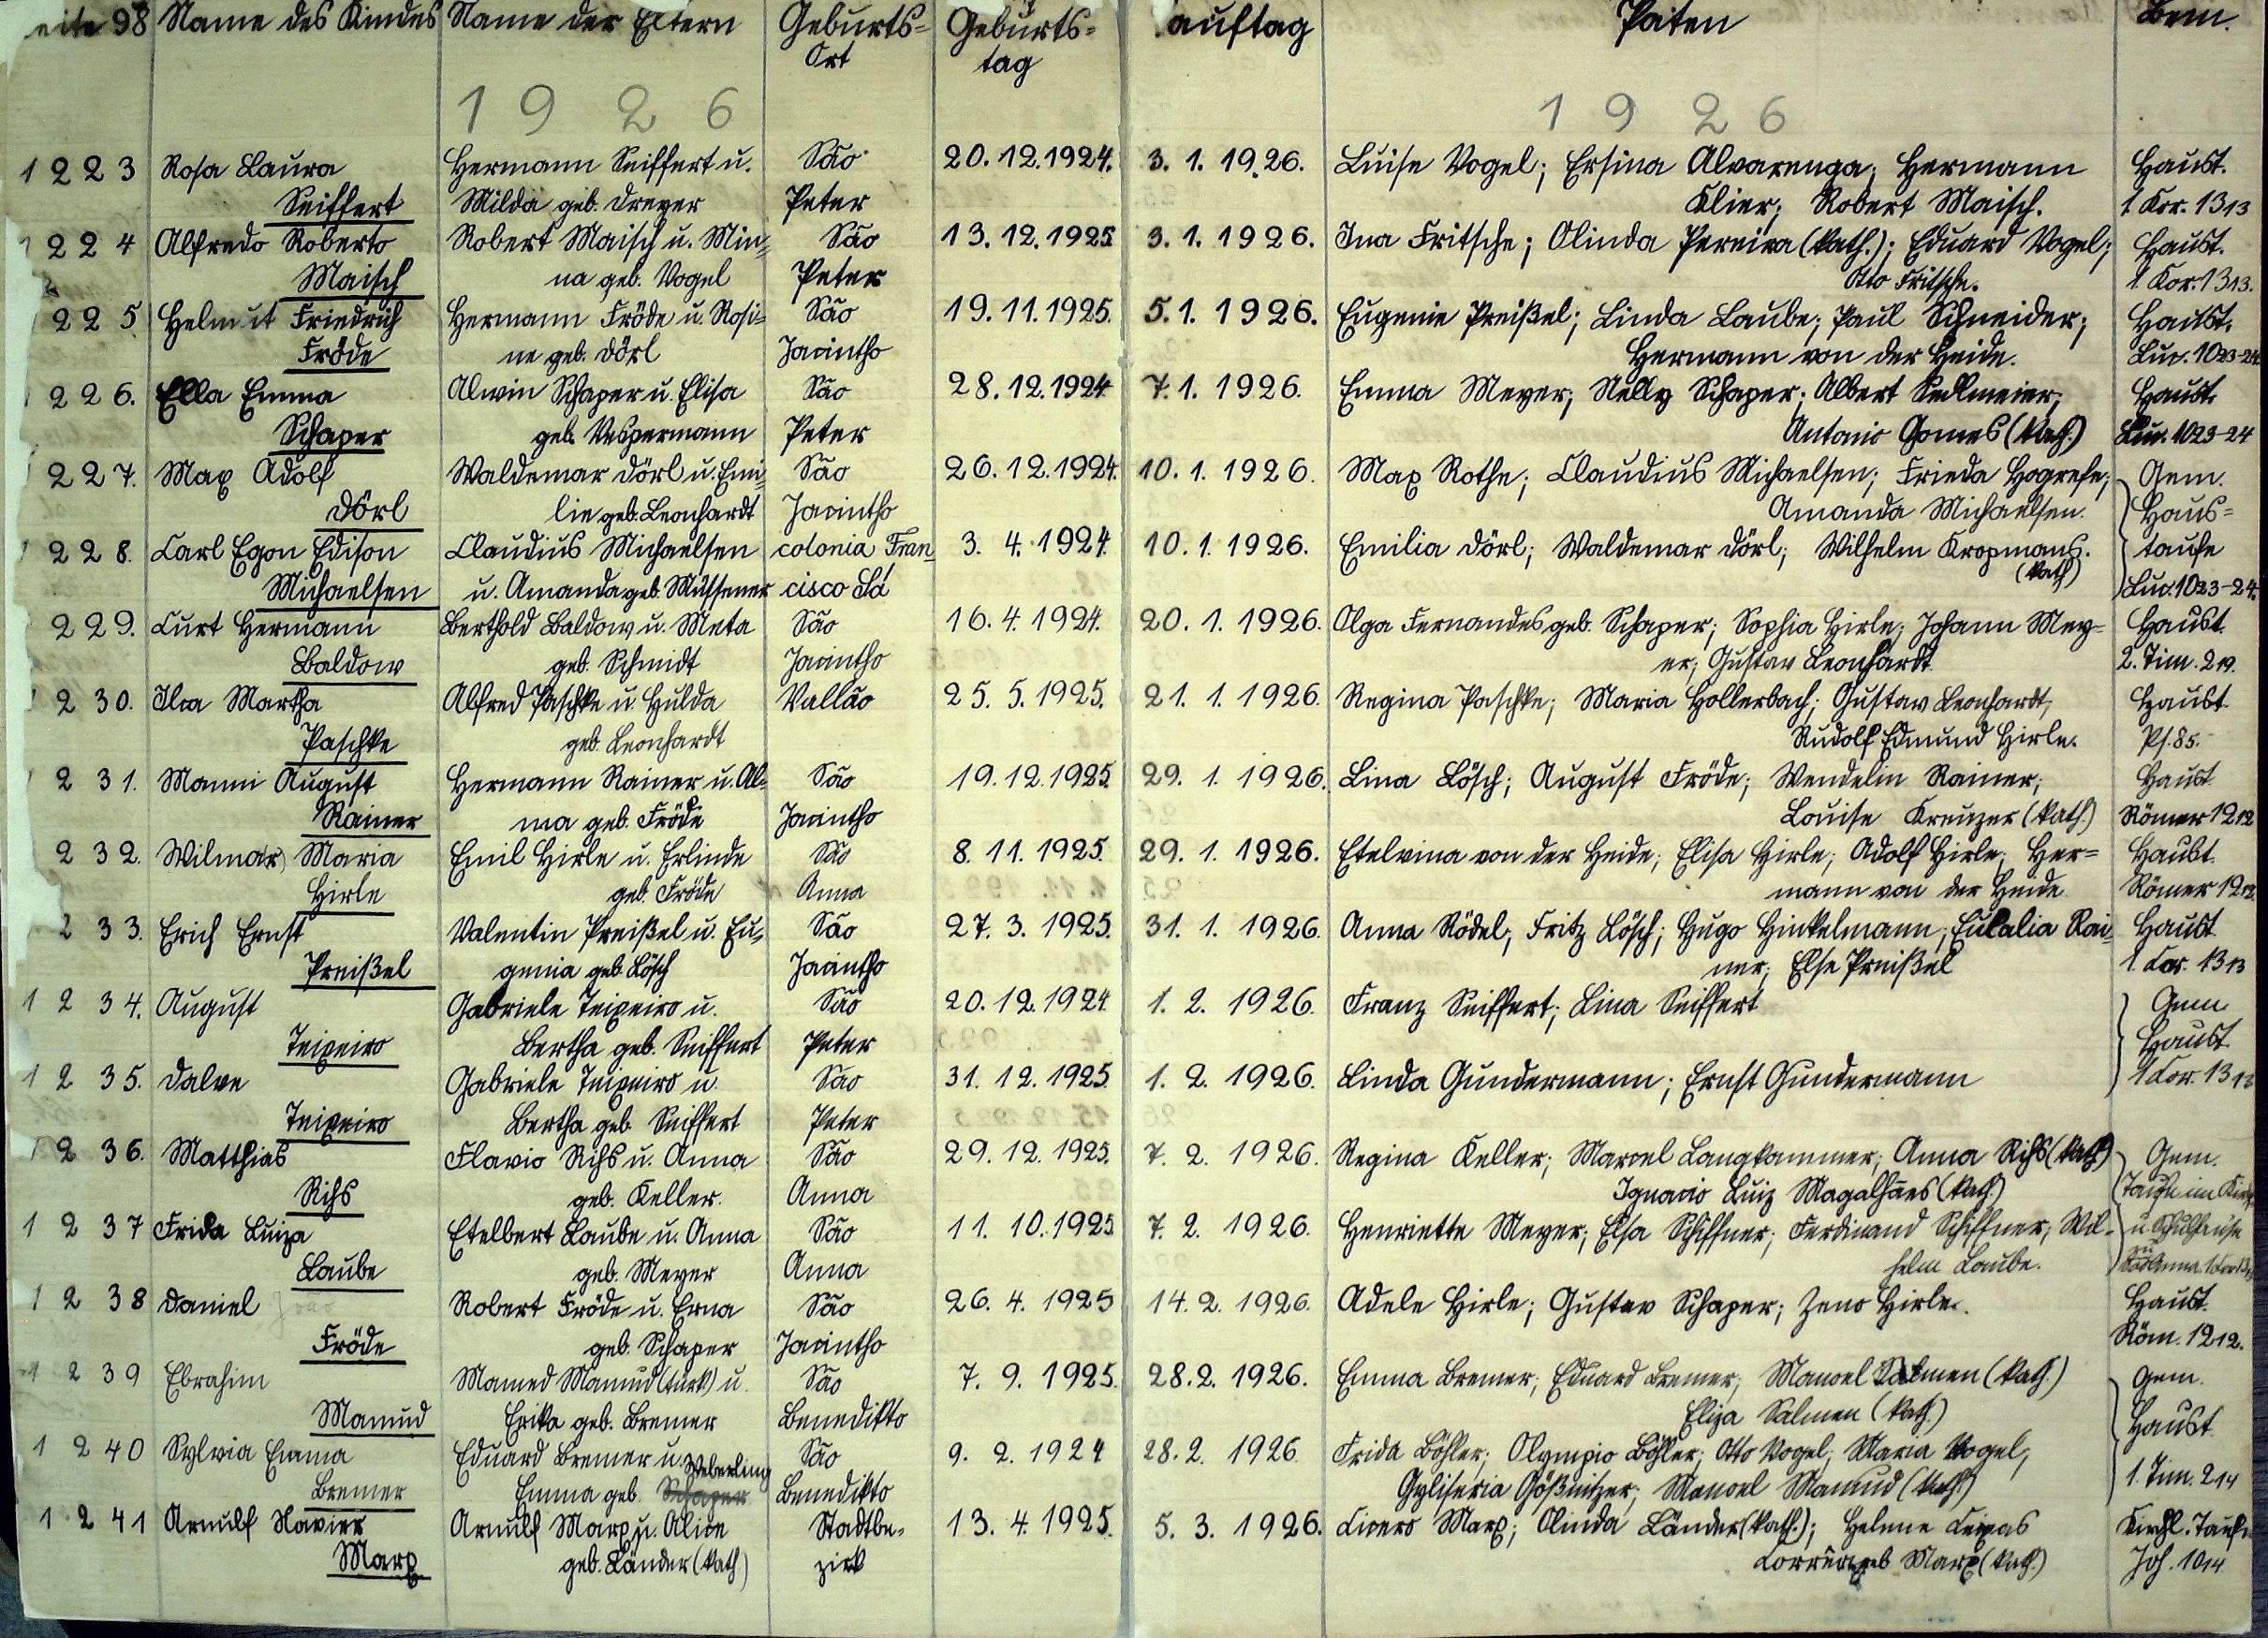 eite 98 Name des Kindes Name der Eltern Geburts= Geburts= auftag Paten Bem.
Ort tag
1926 1926
1223 Rosa Laura Hermann Seiffert u. São 20.12.1924. 3.1.1926. Luise Vogel; Ersina Alvarenga; Hermann Haust.
Seiffert Milda geb. Dreyer Peter Klier; Robert Maisch. 1 Kor. 13 13
1224 Alfredo Roberto Robert Maisch u. Min= São 13.12.1925 3.1.1926. Ina Fritsche; Olinda Pereira (kath.); Eduard Vogel; Haust.
Maisch na geb. Vogel Peter Otto Fritsche. 1 Kor. 13 13.
1225 Helmut Friedrich Hermann Fröde u. Rosi= São 19.11.1925. 5.1.1926. Eugenie Preißel; Linda Laube; Paul Schneider; Haust.
Fröde ne geb. Dörl Jacintho Hermann von der Heide. Luc. 10 23-24
1226. Ella Emma Alwin Schaper u. Elisa São 28.12.1924 7.1.1926. Emma Meyer; Nelly Schaper; Albert Sedlmeier; Haust.
Schaper geb. Vespermann Peter Antonio Gomes (kath.) Luc. 10 23-24
1227. Max Adolf Waldemar Dörl u. Emi= São 26.12.1924. 10.1.1926. Max Rothe; Claudius Michaelsen; Frieda Hogrefe; Gem.
Dörl lie geb. Leonhardt Jacintho Amanda Michaelsen. Haus=
1228. Carl Egon Edison Claudius Michaelsen colonia Fran 3.4.1924. 10.1.1926. Emilia Dörl; Waldemar Dörl; Wilhelm Kropmans. taufe
Michaelsen u. Amanda geb. Müssener cisco Sá (kath) Luc. 10 23-24.
229. Curt Hermann Berthold Baldow u. Meta São 16.4.1924. 20.1.1926. Olga Fernandes geb. Schaper; Sophia Hirle; Johann Mey= Haust.
Baldow geb. Schmidt Jacintho er; Gustav Leonhardt 2. Tim. 2 19.
1230. Ilca Martha Alfred Paschke u. Hulda Vallão 25.5.1925. 21.1.1926. Regina Paschke; Maria Hollerbach; Gustav Leonhardt, Haust.
Paschke geb. Leonhardt Rudolf Edmund Hirle. Ps. 85.
1231. Manni August Hermann Rainer u. Al= São 19.12.1925. 29.1.1926. Lina Lösch; August Fröde; Wendelin Rainer; Haust
Rainer ma geb. Fröde Jacintho Louise Kreuzer (kath.) Römer 12 12
232. Wilmar Maria Emil Hirle u. Erlinde São 8.11.1925. 29.1.1926. Etelvina von der Heide; Elisa Hirle; Adolf Hirle; Her= Haubt.
Hirle geb. Fröde Anna mann von der Heide Römer 12 12.
233. Erich Ernst Valentin Preißel u. Eu= São 27.3.1925. 31.1.1926. Anna Rödel; Fritz Lösch; Hugo Hinkelmann; Eulalia Rai= Haust
Preißel genia geb. Lösch Jacintho ner; Else Preißel 1. Cor. 13 13
1234. August Gabriele Teixeiro u. São 20.12.1924 1.2.1926. Franz Seiffert; Lina Seiffert Gem
Teixeiro Bertha geb. Seiffert Peter Haust
1235. Dalve Gabriele Teixeiro u. São 31.12.1925 1.2.1926. Linda Gundermann; Ernst Gundermann 1 Cor. 13 13
Teixeiro Bertha geb. Seiffert Peter
1236. Matthias Flavio Rihs u. Anna São 29.12.1925. 7.2.1926. Regina Keller; Marcel Langkammer; Anna Rihs (kath) Gem.
Rihs geb. Keller. Anna Ignacio Luiz Magalhães (kath.) Taufe im
1237 Frida Luiza Etelbert Laube u. Anna São 11.10.1925 7.2.1926. Henriette Meyer; Elsa Schiffner; Ferdinand Schiffner; Wil-
Laube geb. Meyer Anna helm Laube.
1238 Daniel Robert Fröde u. Erna São 26.4.1925 14.2.1926. Adele Hirle; Gustav Schaper; Zeno Hirle. Haust.
Fröde geb. Schaper Jacintho Röm. 12 12.
1239 Ebrahim Mamed Mamud (türk) u. São 7.9.1925. 28.2.1926. Emma Bremer; Eduard Bremer; Manoel Salmen (kath.) Gem.
Mamud Erika geb. Bremer Benedikto Eliza Salmen (kath.) Haust
1240 Sylvia Emma Eduard Bremer u. Weberling São 9.2.1924 28.2.1926 Frida Böhler; Olympio Böhler; Otto Vogel; Maria Vogel,
Bremer Emma geb. Schaper Benedikto Gyliseria Gößnitzer; Manoel Mamud (kath.) 1. Tim. 2 14
1241 Arnulf Navier Arnulf Marx u. Alice Stadtbe= 13.4.1925. 5.3.1926. Cicero Marx; Olinda Länder (kath.); Helene Leixas Kirchl. Taufe
Marx geb. Länder (kath) zirk Corrêa geb Marx (kath.) Joh. 10 14